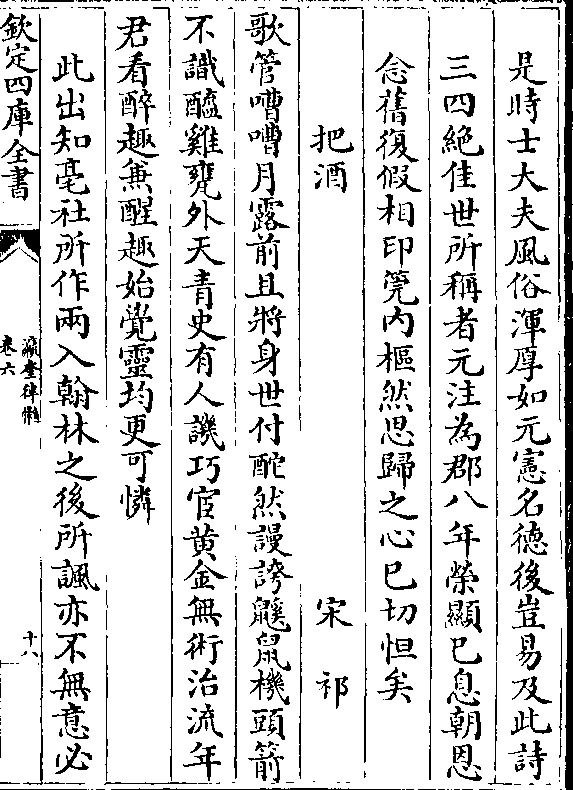 是時士大夫風俗渾厚如元憲名徳後豈易及此詩
三四絶佳世所稱者元注為郡八年榮顯已息朝恩
念舊復假相印筦内樞然思歸之心已切怛矣
把酒 宋祁
歌管嘈嘈月露前且將身世付酡然謾誇鼷鼠機頭箭
不識醯雞甕外天青史有人譏巧宦黄金無術治流年
君看醉趣兼醒趣始覺靈均更可憐
此出知亳社所作兩入翰林之後所諷亦不無意必
欽定四庫全書
瀛奎律髓
卷六
十八